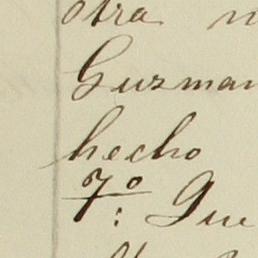 otra
Guzman
hecho
7º: Que